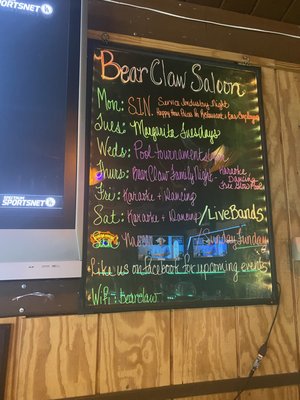 SPORTSNET
SPORTSNET
Bear Claw Saloon
Mon: S.I.N. Service Industry Night
Happy Hour Prices for Restaurant + Bar Employees
Tues: Margarita Tuesdays
Weds: Pool tournaments
Thurs: Bear Claw Family Night Karaoke
Dancing
Free
Fri: Karaoke + Dancing
Sat: Karaoke + Dancing / Live Bands
Sun: / Sunday Funday
Like us on facebook for upcoming events
WiFi: bearclaw